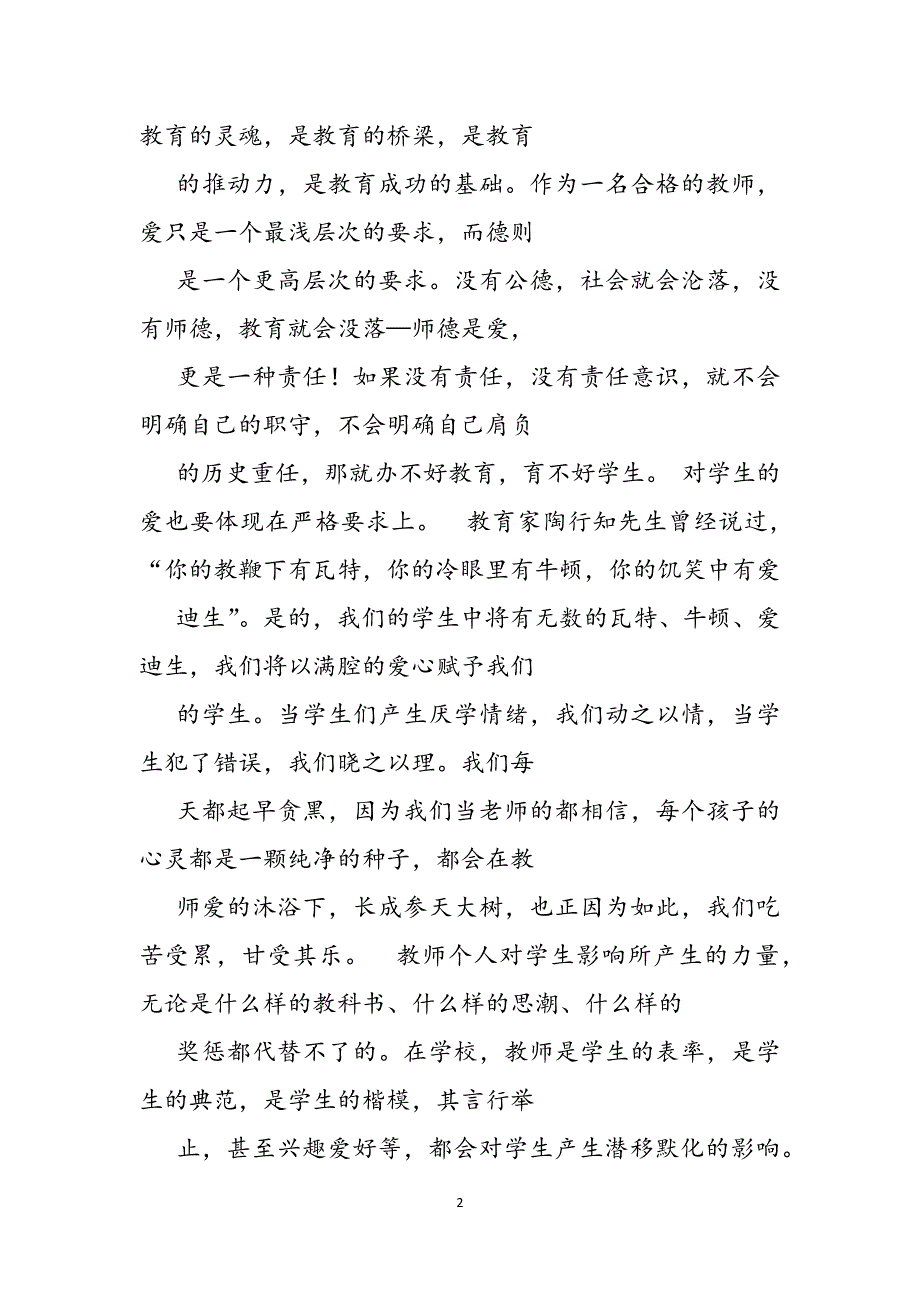 教育的灵魂，是教育的桥梁，是教育
的推动力，是教育成功的基础。作为一名合格的教师，
爱只是一个最浅层次的要求，而德则
是一个更高层次的要求。没有公德，社会就会沦落，没
有师德，教育就会没落—师德是爱，
更是一种责任！如果没有责任，没有责任意识，就不会
明确自己的职守，不会明确自己肩负
的历史重任，那就办不好教育，育不好学生。 对学生的
爱也要体现在严格要求上。 教育家陶行知先生曾经说过，
“你的教鞭下有瓦特，你的冷眼里有牛顿，你的饥笑中有爱
迪生”。是的，我们的学生中将有无数的瓦特、牛顿、爱
迪生，我们将以满腔的爱心赋予我们
的学生。当学生们产生厌学情绪，我们动之以情，当学
生犯了错误，我们晓之以理。我们每
天都起早贪黑，因为我们当老师的都相信，每个孩子的
心灵都是一颗纯净的种子，都会在教
师爱的沐浴下，长成参天大树，也正因为如此，我们吃
苦受累，甘受其乐。 教师个人对学生影响所产生的力量，
无论是什么样的教科书、什么样的思潮、什么样的
奖惩都代替不了的。在学校，教师是学生的表率，是学
生的典范，是学生的楷模，其言行举
止，甚至兴趣爱好等，都会对学生产生潜移默化的影响。
2